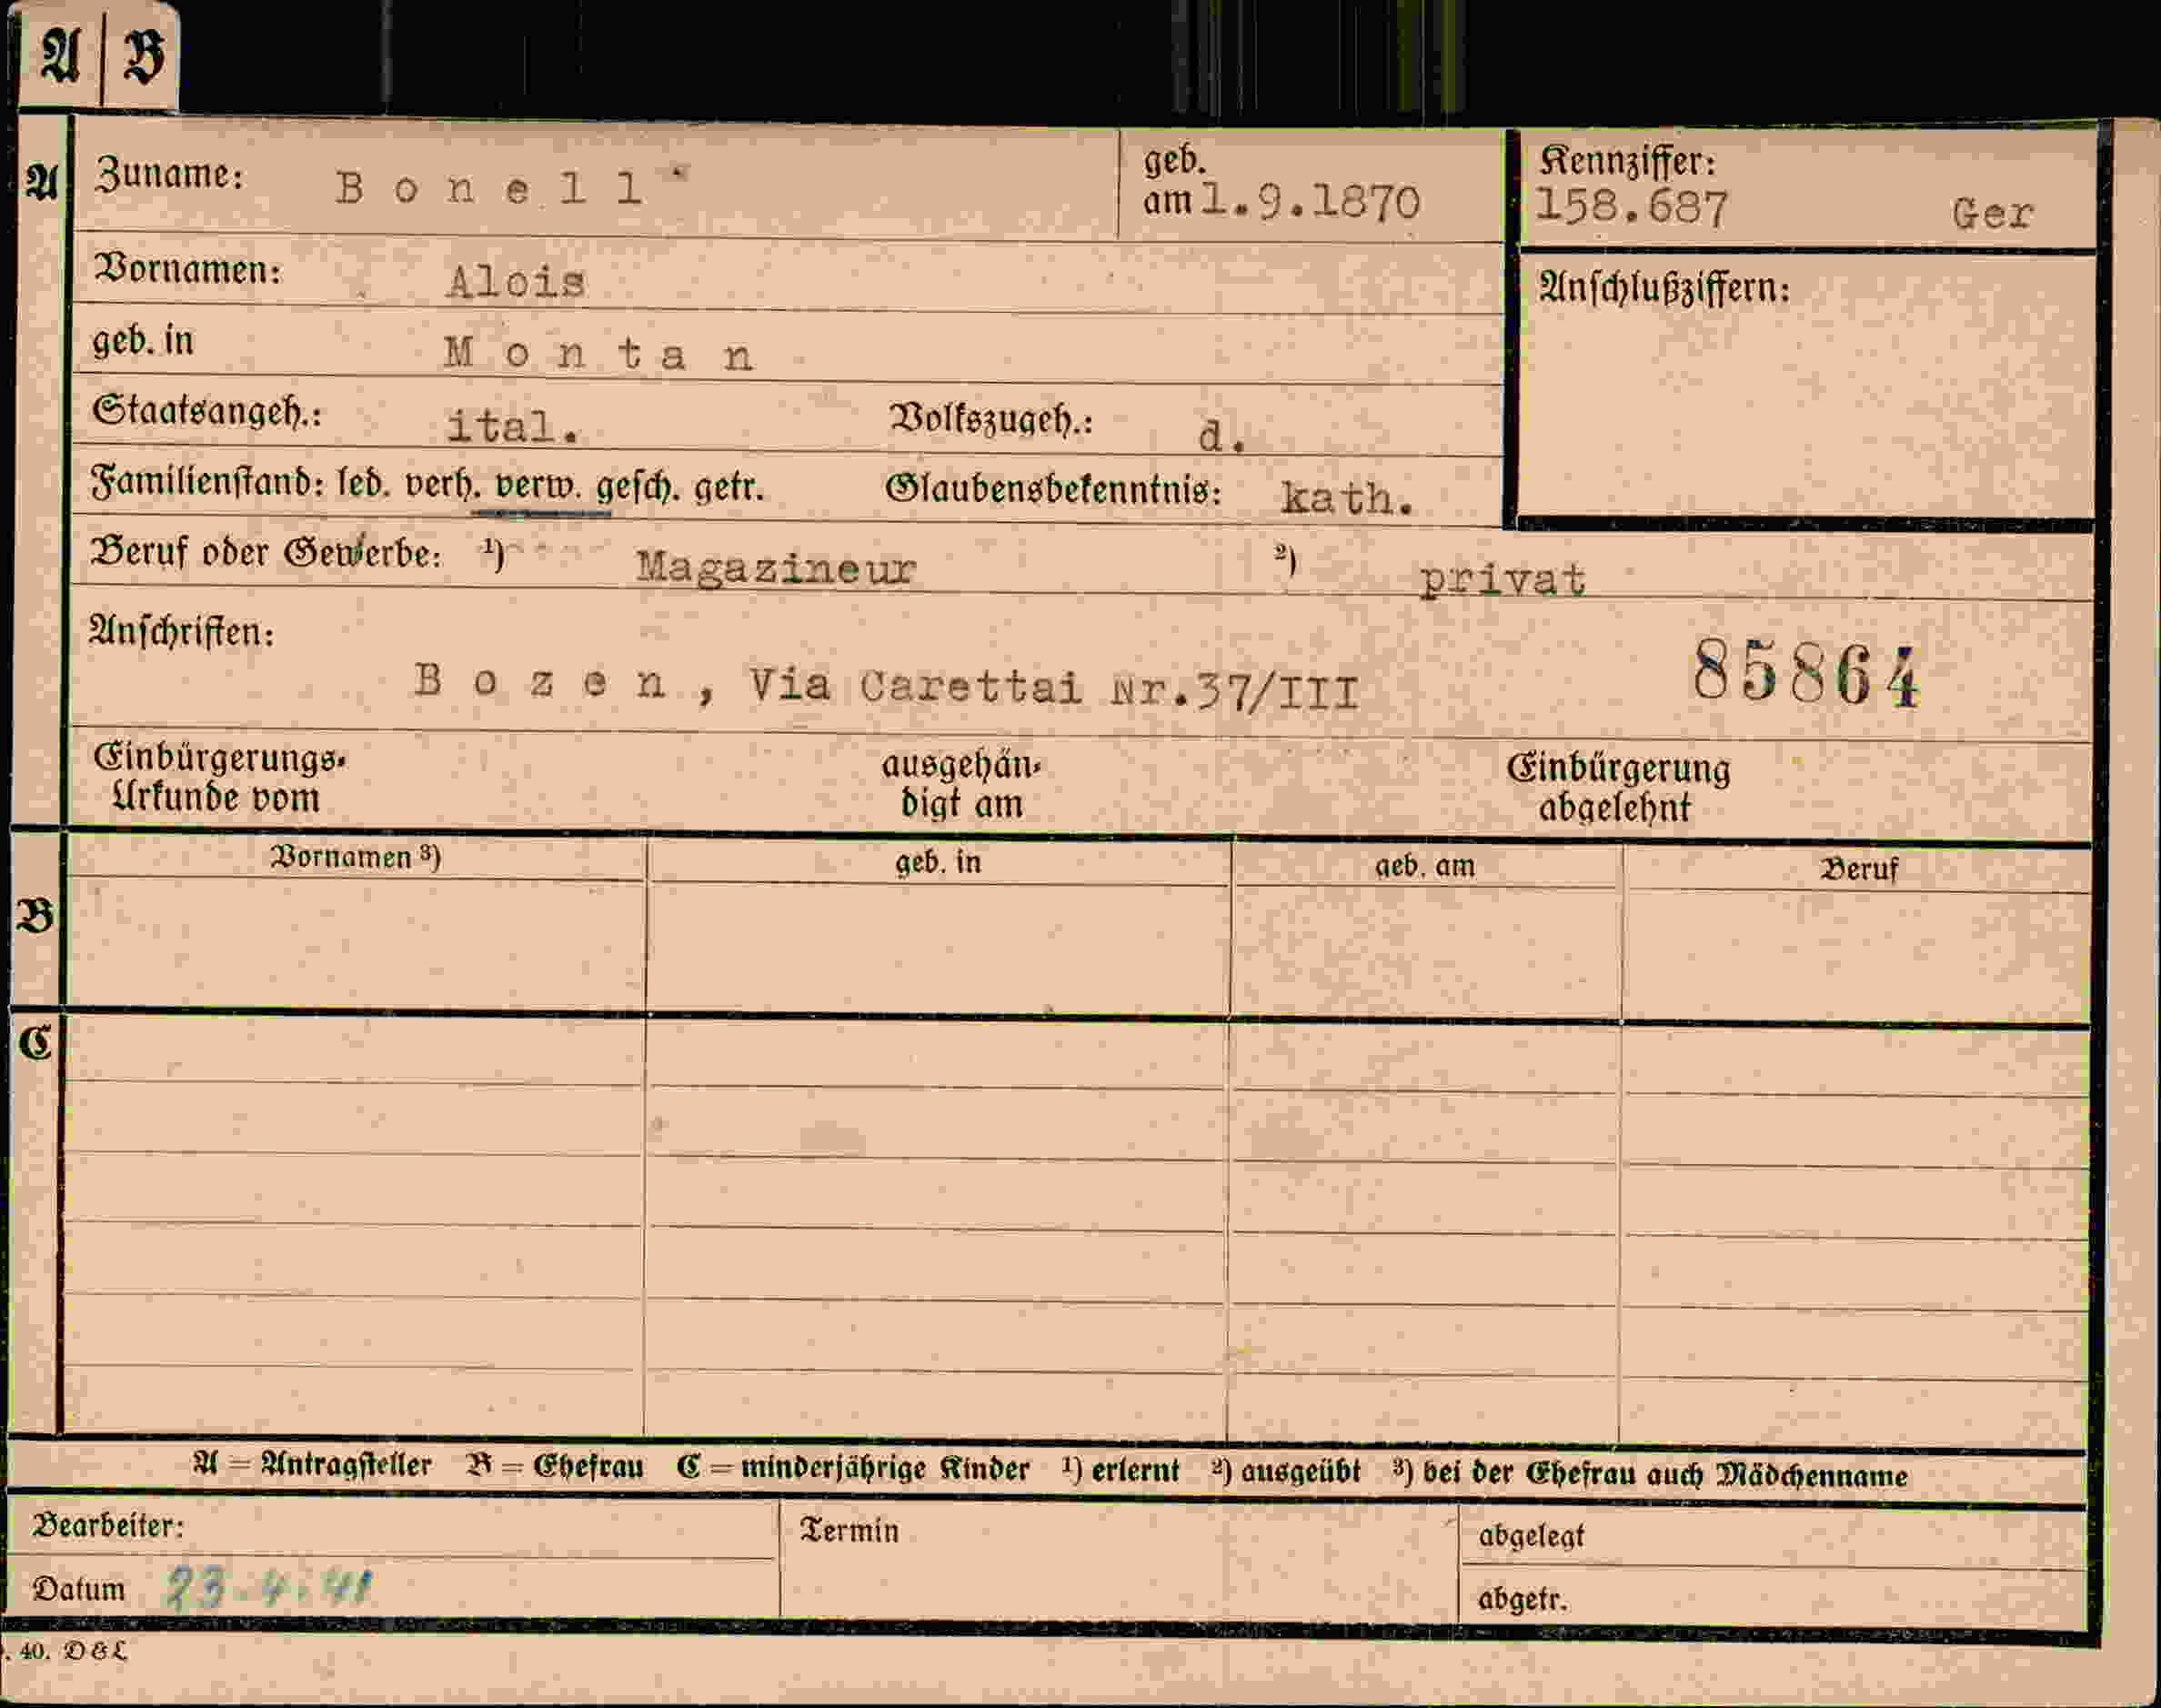 A B
A Zuname: Bonell geb. am 1.9.1870 Kennziffer: 158.687 Ger
Vornamen: Alois Anschlußziffern:
geb. in Montan
Staatsangeh.: ital. Volkszugeh.: d.
Familienstand: led. verh. verw. gesch. getr. Glaubensbekenntnis: kath.
Beruf oder Gewerbe: ¹) Magazineur ²) privat
Anschriften:
Bozen, Via Carettai Nr.37/III 85864
Einbürgerungs-Urkunde vom ausgehändigt am Einbürgerung abgelehnt
Vornamen ³) geb. in geb. am Beruf
B
C
A = Antragsteller B = Ehefrau C = minderjährige Kinder ¹) erlernt ²) ausgeübt ³) bei der Ehefrau auch Mädchenname
Bearbeiter: Termin abgelegt
Datum 23.4.41 abgetr.
. 40. D&L